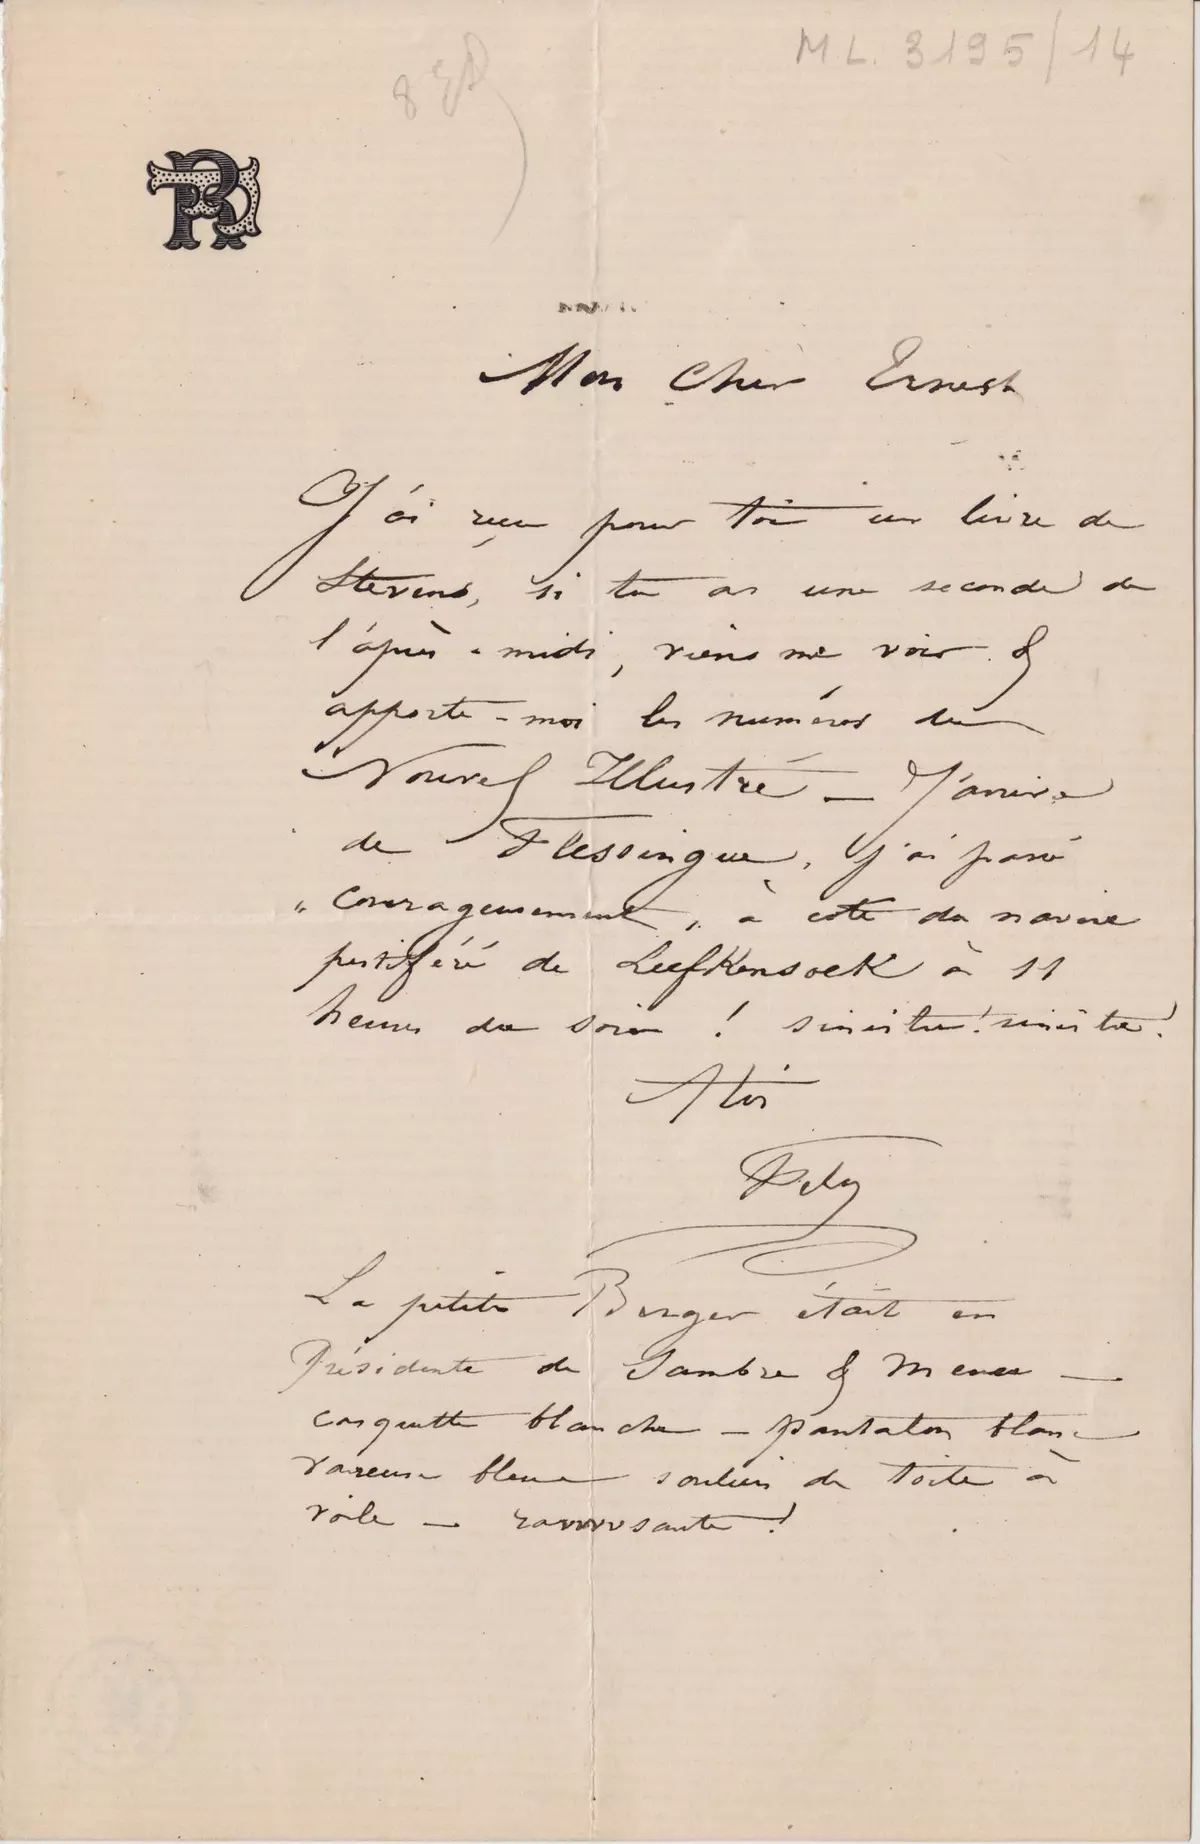 ML. 3195/14
Mon Cher Ernest
J'ai reçu pour toi un livre de
Stevens, si tu as une seconde de
l'après-midi, viens me voir &
apporte-moi les numéros du
Nouvel Illustré — J'arrive
de Flessingue, j'ai passé
"courageusement" à coté du navire
pestiféré de Liefkensoek à 11
heures du soir ! sinistre! sinistre!
A toi
Fély
La petite Berger était en
Présidente de Sambre & Meuse —
casquette blanche — pantalon blanc
vareuse bleue souliers de toile à
voile — ravvvvsante !